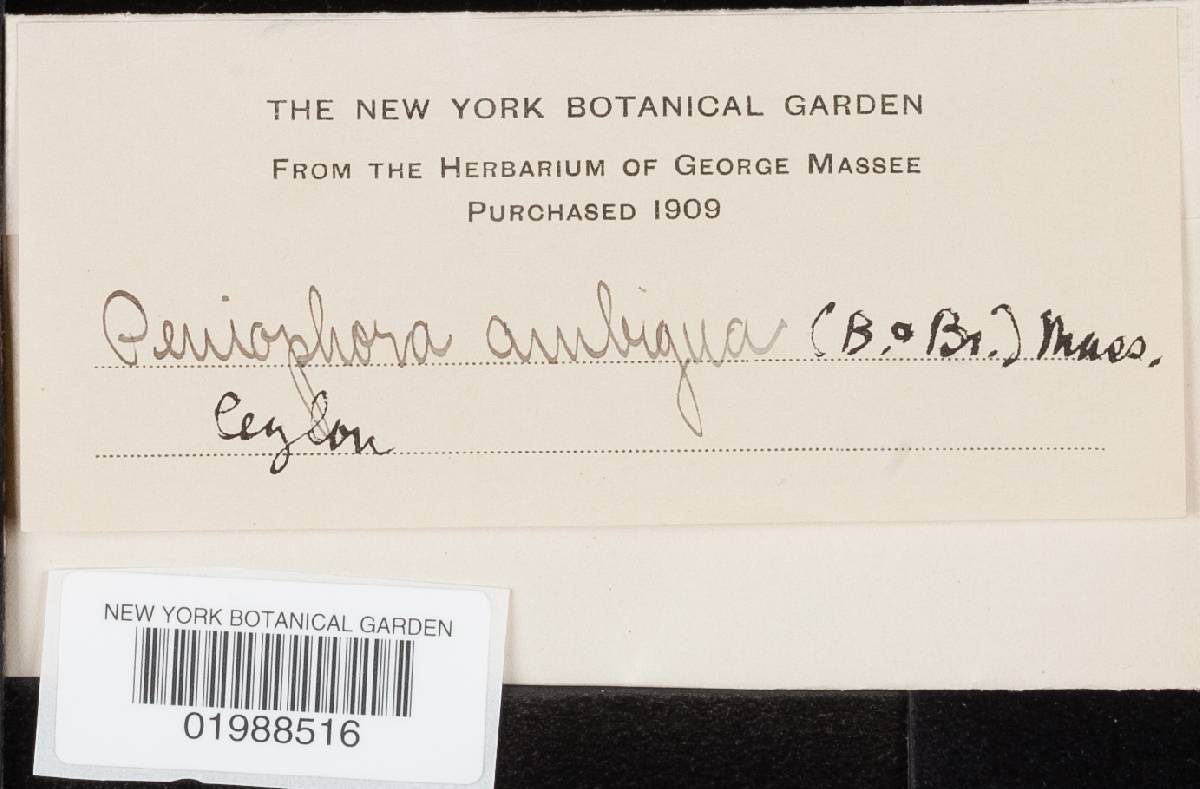 THE NEW YORK BOTANICAL GARDEN
FROM THE HERBARIUM OF GEORGE MASSEE
PURCHASED 1909
Peniophora ambigua (B. & Br.) Mass.
Ceylon
NEW YORK BOTANICAL GARDEN
01988516